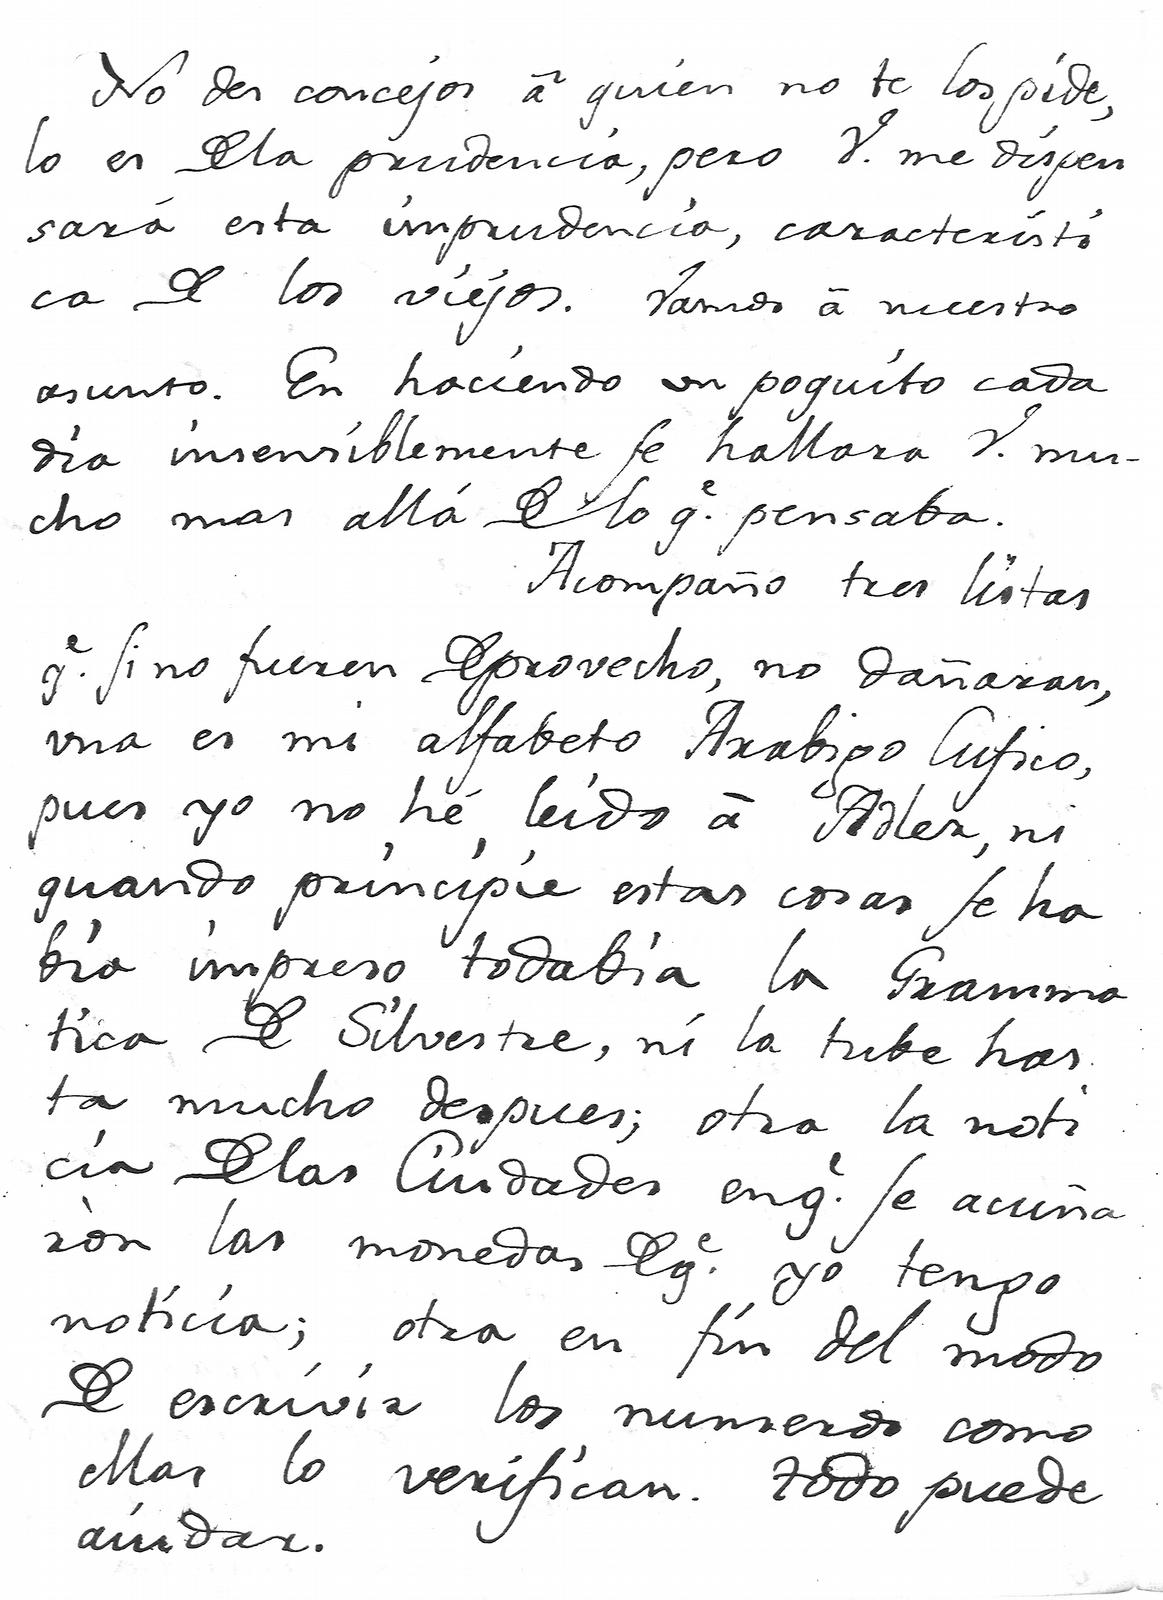 No des concejos â quien no te los pide,
lo es De la prudencia, pero V. me dispen
sará esta imprudencia, caracteristi
ca De los viejos. Vamos â nuestro
asunto. En haciendo un poquito cada
dia insensiblemente se hallara V. mu-
cho mas allá De lo q.e pensaba.
Acompaño tres listas
q.e si no fueren De provecho, no dañaran,
vna es mi alfabeto Arabigo Cufico,
pues yo no hé leido â Adler, ni
quando principié estas cosas se ha
bia impreso todabia la Gramma
tica De Silvestre, ni la tube has
ta mucho despues; otra la noti
cia De las Ciudades en q.e se acuña
ròn las monedas De q.e yo tengo
noticia; otra en fin del modo
De escrivir los numeros como
ellas lo verifican. todo puede
aiudar.